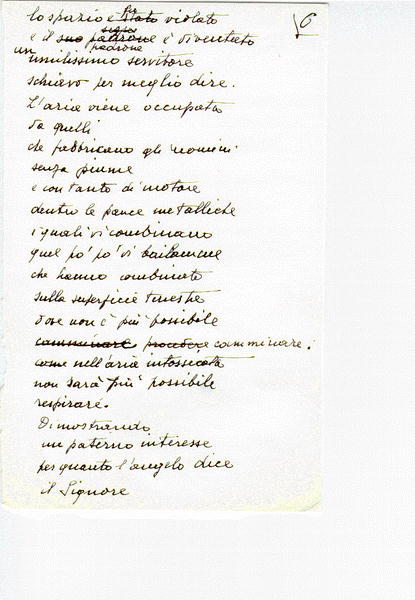 6
lo spazio è stato violato
e il suo padrone è diventato
un umilissimo servitore
schiavo per meglio dire.
L'aria viene occupata
da quelli
che fabbricano gli uomini
senza piume
e con tanto di motore
dentro le pance metalliche
i quali vi combinano
quel po' po' di bailamme
che hanno combinato
sulla superficie terrestre
dove non è più possibile
camminare procedere camminare.
come nell'aria intossicata
non sarà più possibile
respirare.
Dimostrando
un paterno interesse
per quanto l'angelo dice
il Signore